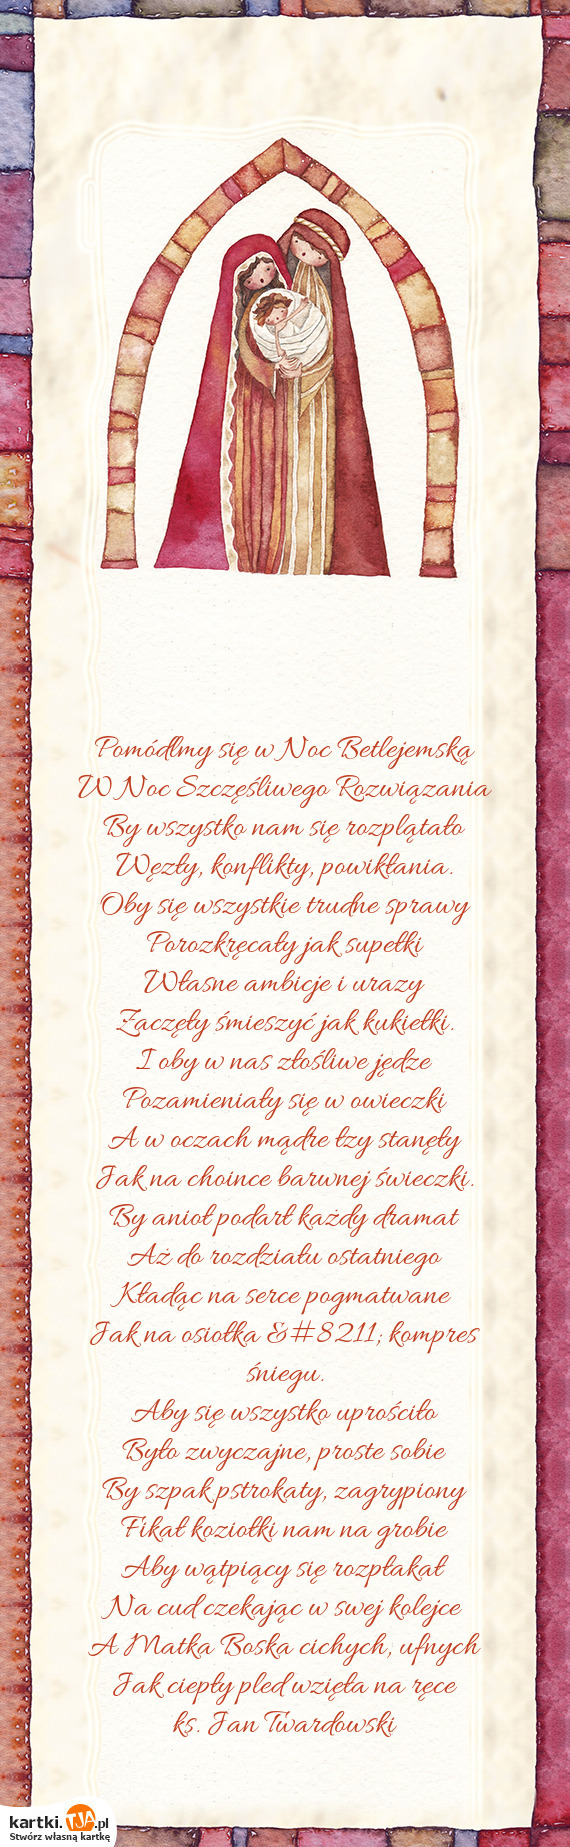 Pomódlmy się w Noc Betlejemską
W Noc Szczęśliwego Rozwiązania
By wszystko nam się rozplątało
Węzły, konflikty, powikłania.
Oby się wszystkie trudne sprawy
Porozkręcały jak supełki
Własne ambicje i urazy
Zaczęły śmieszyć jak kukiełki.
I oby w nas złośliwe jędze
Pozamieniały się w owieczki
A w oczach mądre łzy stanęły
Jak na choince barwnej świeczki.
By anioł podarł każdy dramat
Aż do rozdziału ostatniego
Kładąc na serce pogmatwane
Jak na osiołka &#8211; kompres
śniegu.
Aby się wszystko uprościło
Było zwyczajne, proste sobie
By szpak pstrokaty, zagrypiony
Fikał koziołki nam na grobie
Aby wątpiący się rozpłakał
Na cud czekając w swej kolejce
A Matka Boska cichych, ufnych
Jak ciepły pled wzięła na ręce
ks. Jan Twardowski
kartki.TJA.pl
Stwórz własną kartkę